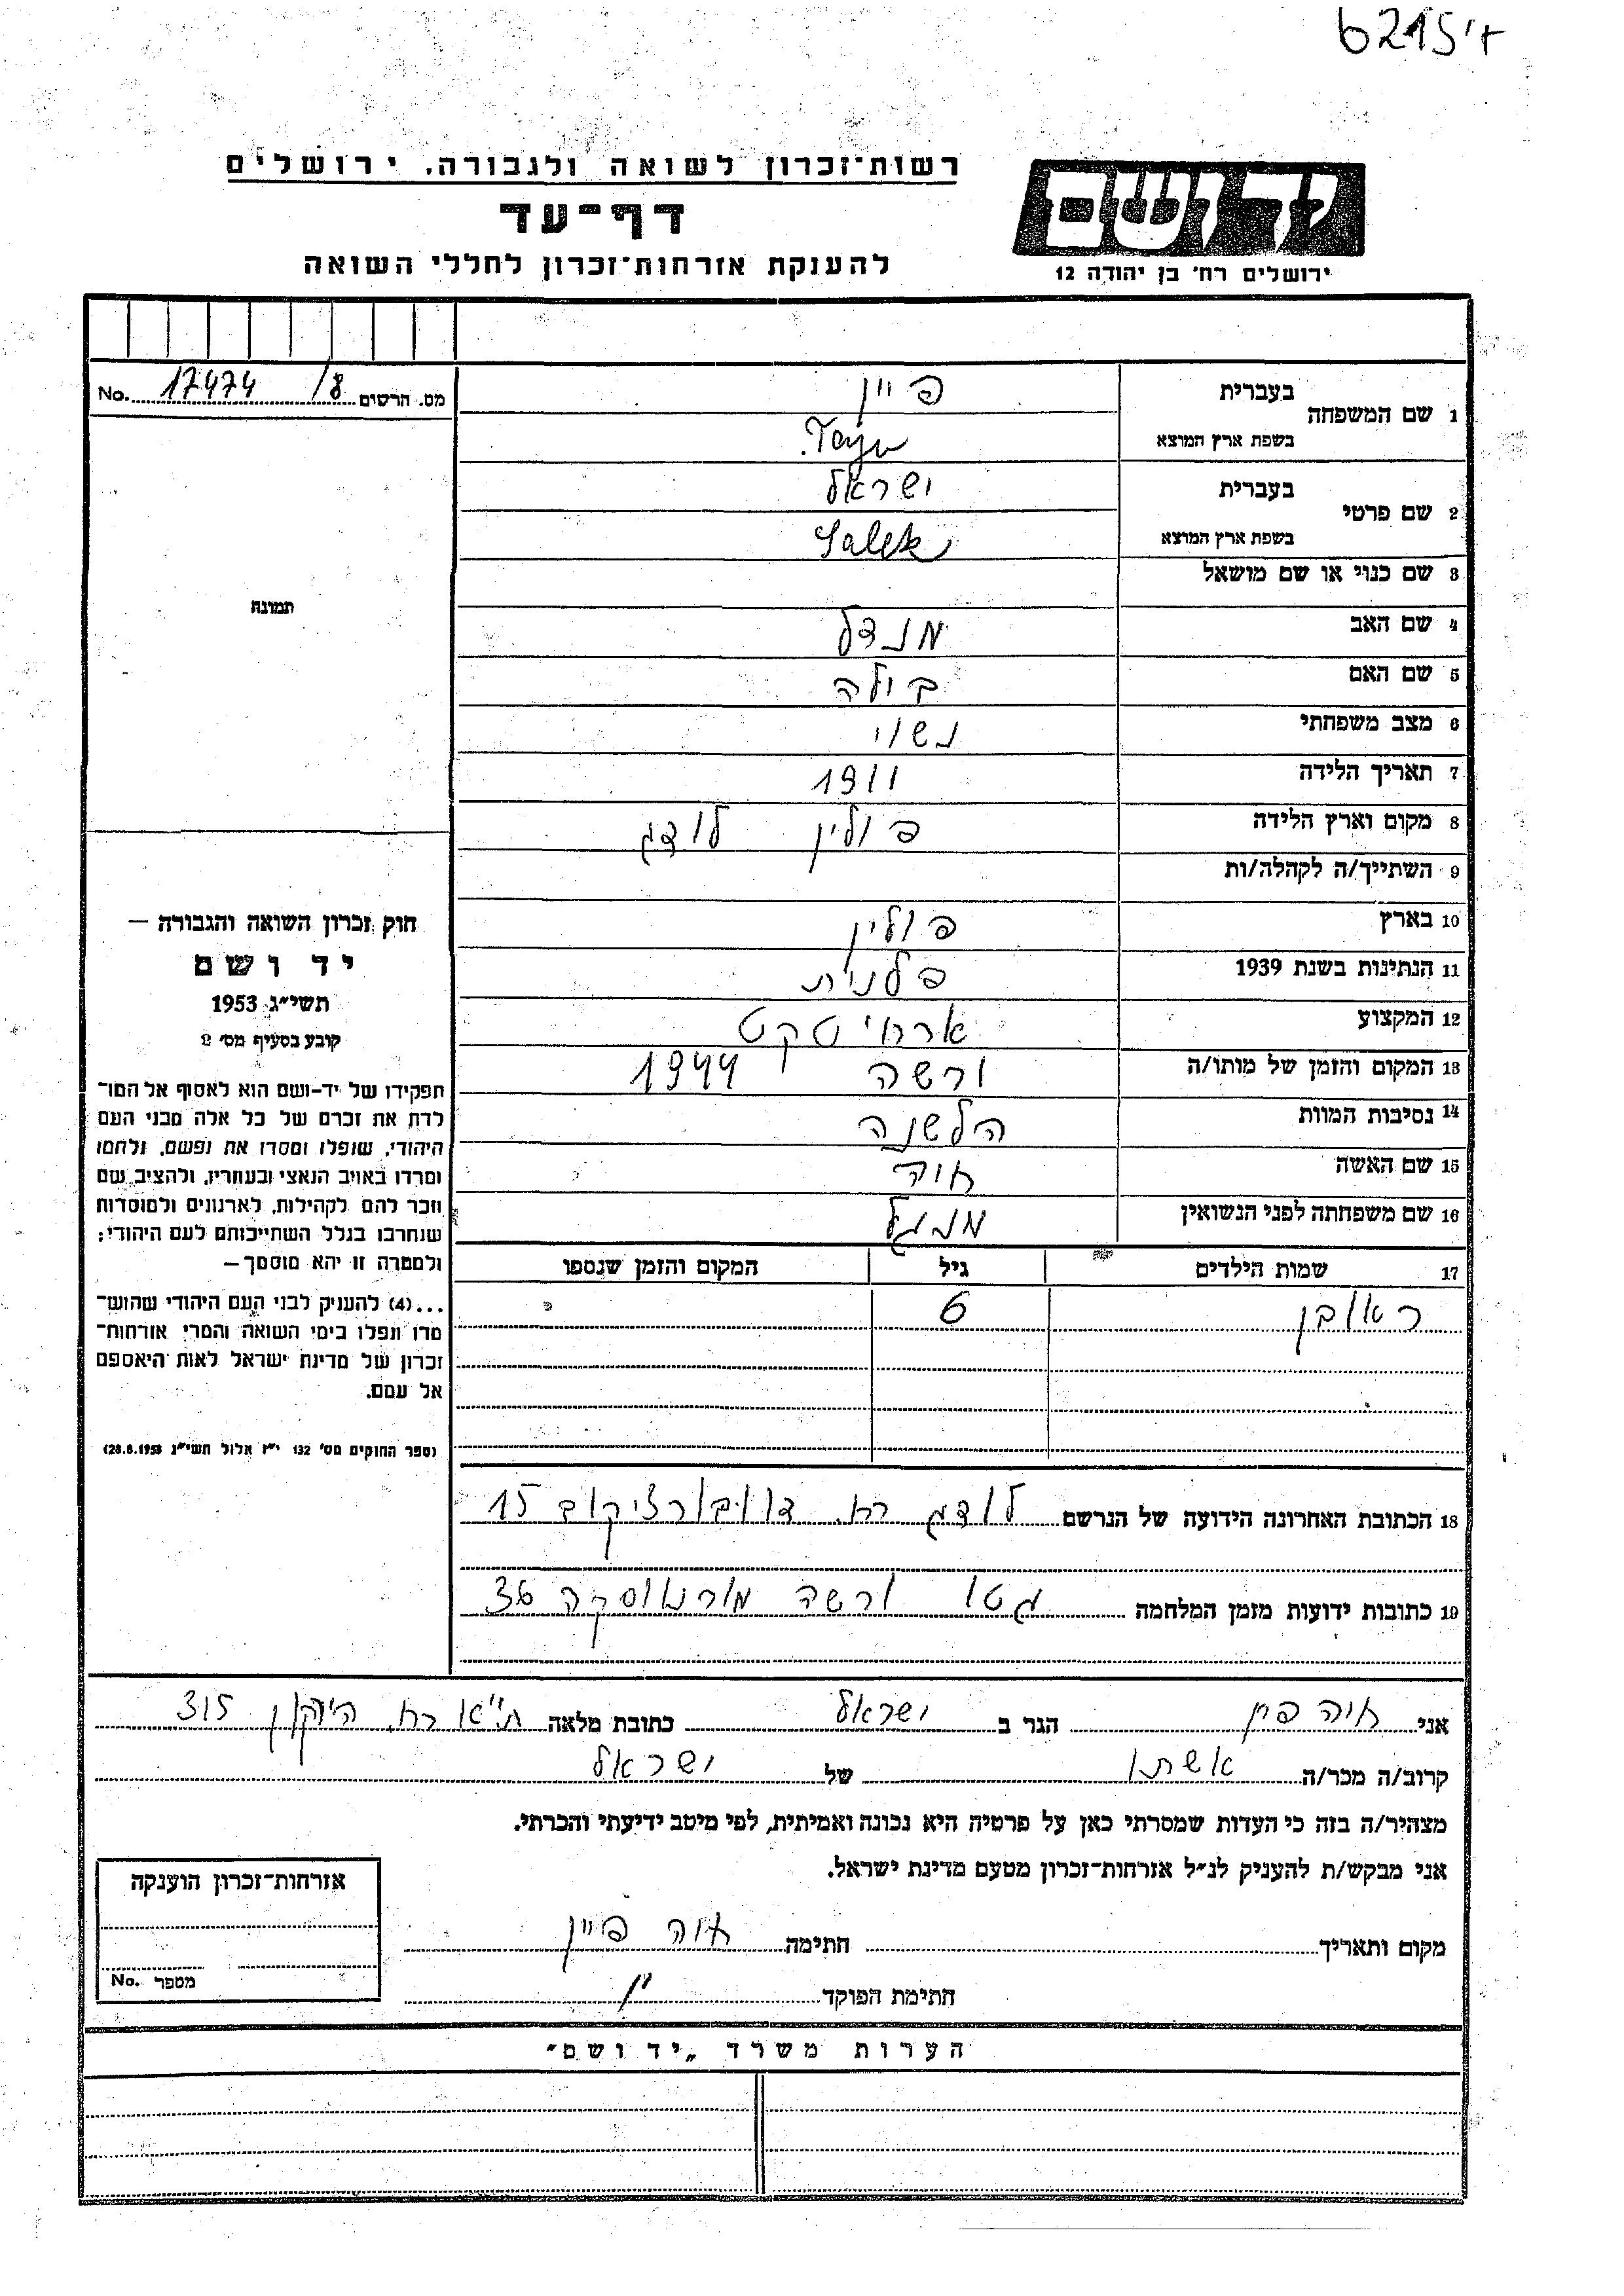 6215 'ד
רשות־זכרון לשואה ולגבורה, ירושלים
דף־עד
להענקת אזרחות־זכרון לחללי השואה
יד ושם
ירושלים רח׳ בן יהודה 12
מס. הרשום 17474 /8 No.
1 שם המשפחה בעברית פיין
בשפת ארץ המוצא
2 שם פרטי בעברית ישראל
בשפת ארץ המוצא Salek
3 שם כנוי או שם מושאל
4 שם האב מנדל
5 שם האם בולה
6 מצב משפחתי נשוי
7 תאריך הלידה 1911
8 מקום וארץ הלידה פולין לודג
9 השתייך/ה לקהלה/ות
10 בארץ פולין
11 הנתינות בשנת 1939 פלנית
12 המקצוע ארחיטקט
13 המקום והזמן של מותו/ה ורשה 1944
14 נסיבות המוות הלשנה
15 שם האשה חוה
16 שם משפחתה לפני הנשואין
17 שמות הילדים גיל המקום והזמן שנספו
ראובן 6
18 הכתובת האחרונה הידועה של הנרשם לודג רח. 15
19 כתובות ידועות מזמן המלחמה גטו ורשה 36
תמונה
חוק זכרון השואה והגבורה —
יד ושם
תשי״ג 1953
קובע בסעיף מס׳ 2
תפקידו של יד-ושם הוא לאסוף אל המו־
לדת את זכרם של כל אלה מבני העם
היהודי, שנפלו ומסרו את נפשם, ולחמו
ומרדו באויב הנאצי ובעוזריו, ולהציב שם
וזכר להם לקהילות, לארגונים ולמוסדות
שנחרבו בגלל השתייכותם לעם היהודי;
ולמטרה זו יהא מוסמך—
...(4) להעניק לבני העם היהודי שהוש־
מדו ונפלו בימי השואה והמרי אזרחות־
זכרון של מדינת ישראל לאות היאספם
אל עמם.
(ספר החוקים מס׳ 132 י״ז אלול תשי״ג 28.8.1953)
אני חוה פיין הגר ב ישראל כתובת מלאה ת״א רח. הירקון 315
קרוב/ה מכר/ה אשתו של ישראל
מצהיר/ה בזה כי העדות שמסרתי כאן על פרטיה היא נכונה ואמיתית, לפי מיטב ידיעתי והכרתי.
אני מבקש/ת להעניק לנ״ל אזרחות־זכרון מטעם מדינת ישראל.
מקום ותאריך חתימה חוה פיין
חתימת הפוקד
אזרחות־זכרון הוענקה
מספר No.
הערות משרד „יד ושם״